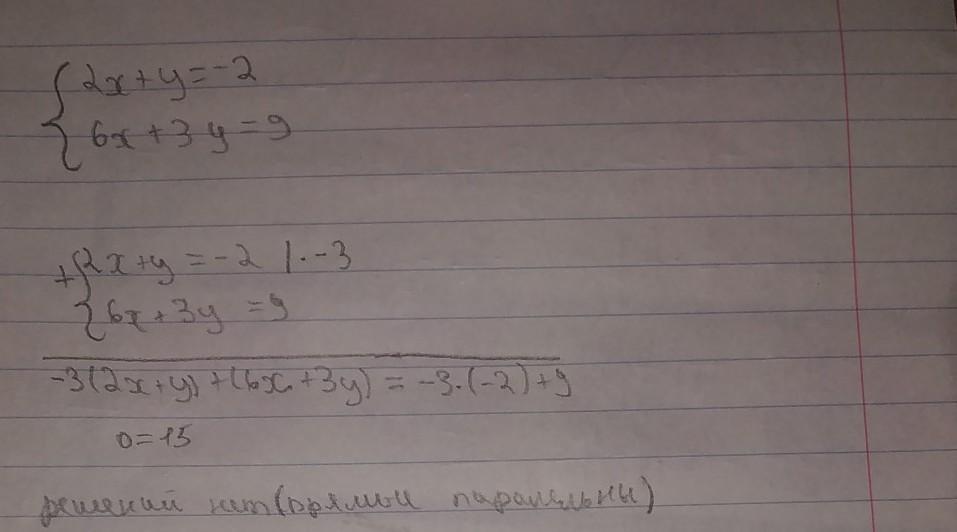 2x+y=-2
6x+3y=9
+ 2x+y=-2 |·-3
6x+3y=9
-3(2x+y)+(6x+3y)=-3·(-2)+9
0=15
решений нет(прямые паралельны)